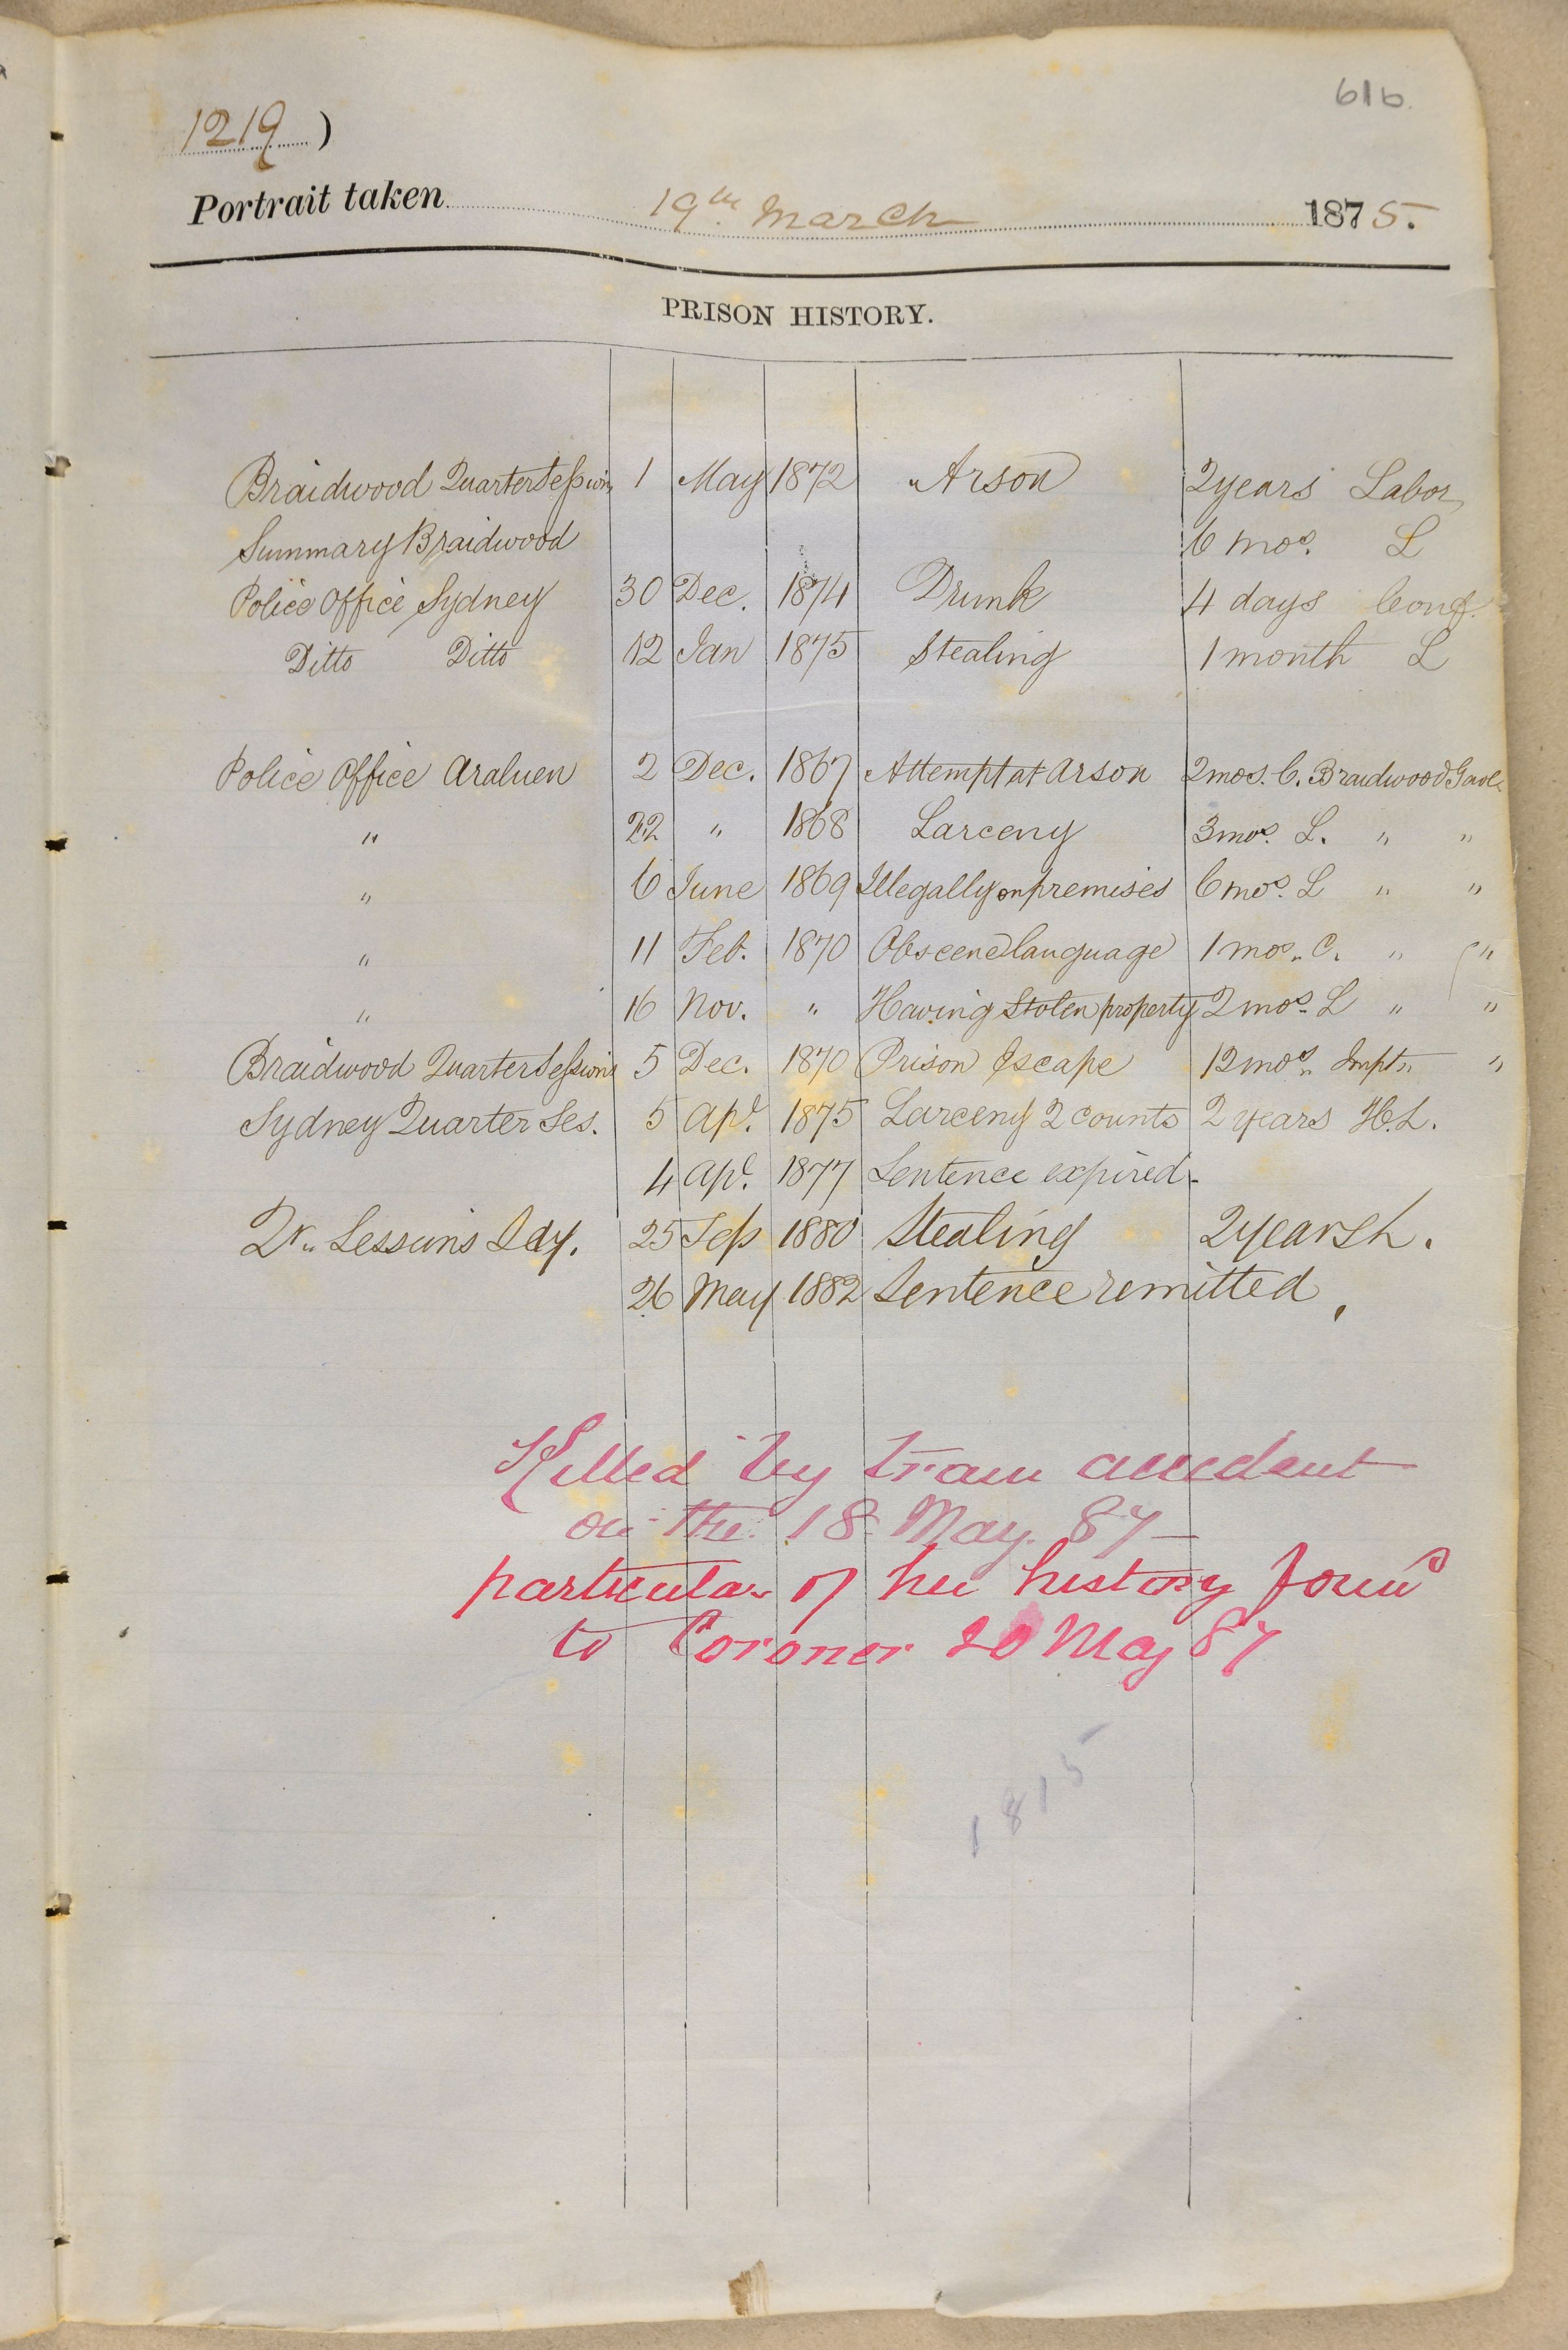 616
1219)
Portrait taken 19th March 1875.
PRISON HISTORY.
Braidwood Quarter Sessions 1 May 1872 Arson 2 years Labor
Summary Braidwood 6 mos. L
Police Office Sydney 30 Dec. 1874 Drunk 4 days Conf.
Ditto Ditto 12 Jan 1875 Stealing 1 month L
Police Office Araluen 2 Dec. 1867 Attempt at Arson 2 mos. C. Braidwood Gaol
" 22 " 1868 Larceny 3 mos. L. " "
" 6 June 1869 Illegally on premises 6 mos. L " "
" 11 Feb. 1870 Obscene language 1 mos. C. " "
" 16 Nov. " Having Stolen property 2 mos. L " "
Braidwood Quarter Sessions 5 Dec. 1870 Prison Escape 12 mos. Impt. "
Sydney Quarter Ses. 5 Apl. 1875 Larceny 2 counts 2 years H.L.
4 Apl. 1877 Sentence expired.
Qr. Sessions Sdy. 25 Sep 1880 Stealing 2 years L.
26 May 1882 Sentence remitted,
Killed by tram accident
on the 18 May. 87
particular of her history
to Coroner 20 May 87
1815